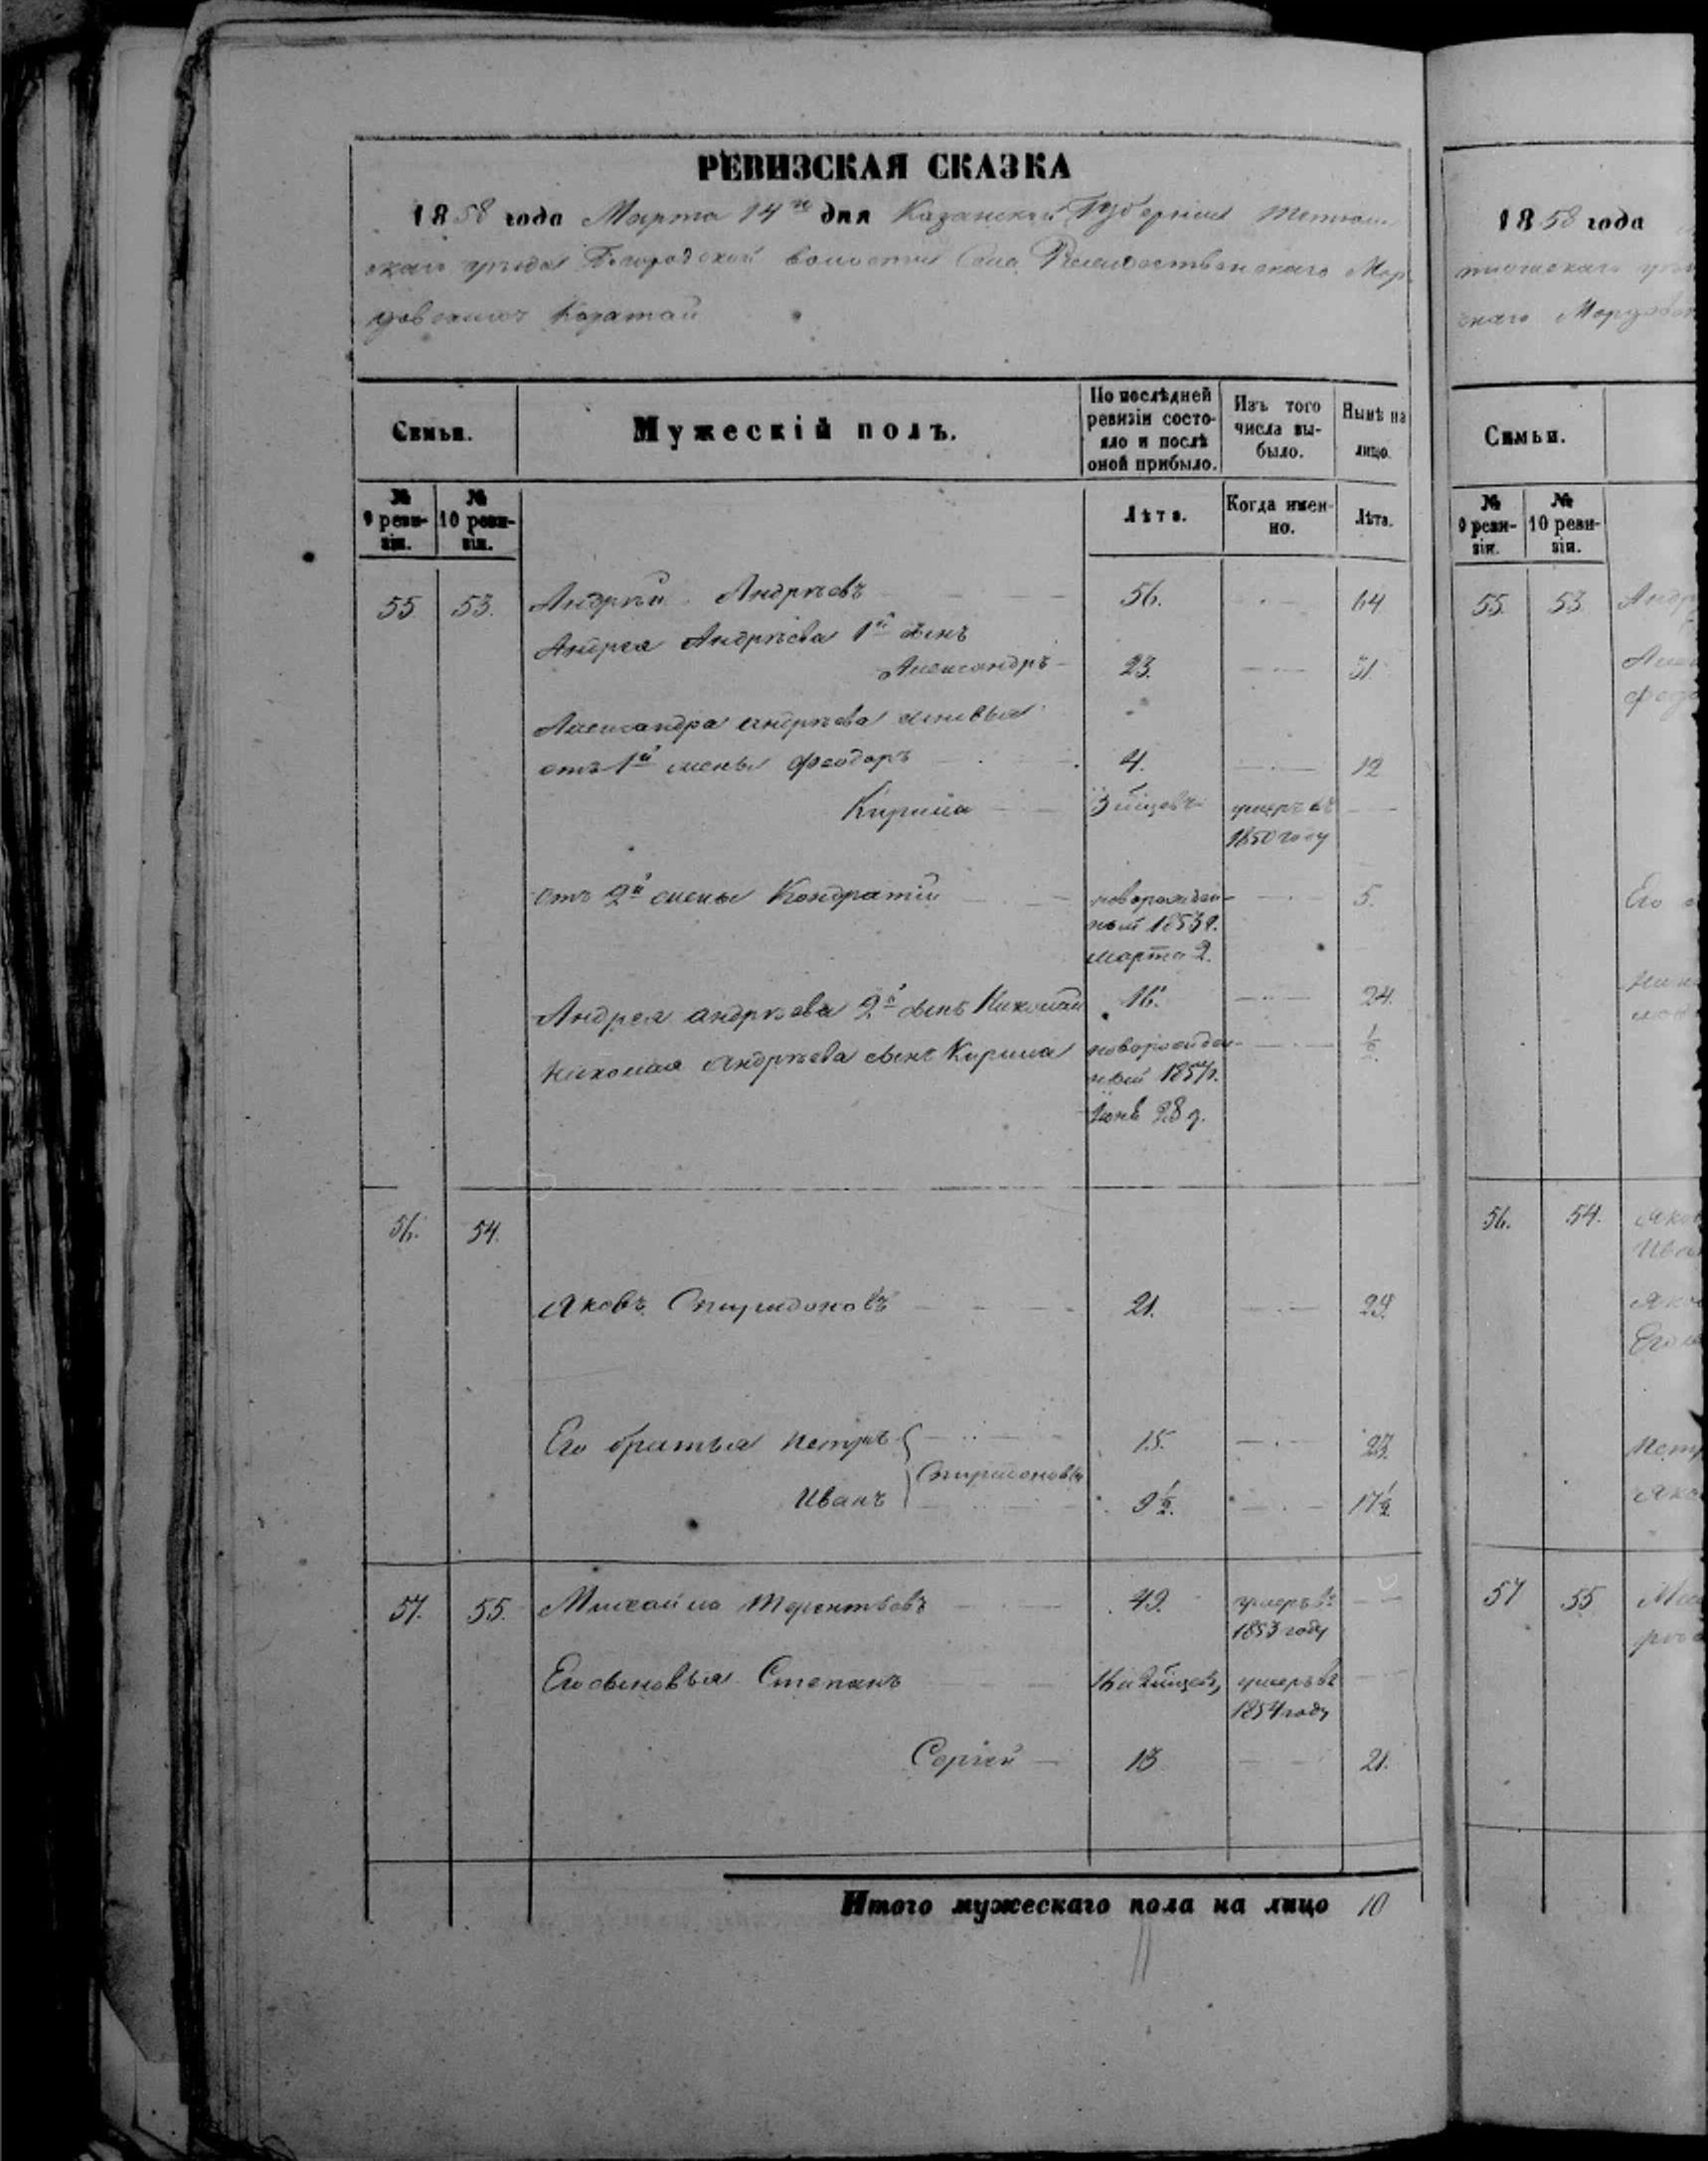 РЕВИЗСКАЯ СКАЗКА
1858 года Марта 14го дня Казанской Губернии Тетюш-
скаго уѣзда Богородской волости Села Рождественскаго Мор-
довскихъ Каратай
Семьи.
Мужескій полъ.
По послѣдней ревизіи состо-
яло и послѣ
оной прибыло.
Изъ того
числа вы-
было.
Нынѣ на
лицо.
№
9 реви-
зіи.
№
10 реви-
зіи.
Лѣта.
Когда имен-
но.
Лѣта.
55 53. Андрѣй Андрѣевъ 56. 64
Андрея Андрѣева 1й сынъ
Александръ 23. 31.
Александра Андрѣева сыновья
отъ 1й жены Феодоръ 4. 12
Кирила 3 мѣсяцевъ умеръ въ
1850 году
отъ 2й жены Кондратій новорожден-
ный 1853 г.
марта 2. 5.
Андрея Андрѣева 2й сынъ Николай 16. 24.
Николая Андрѣева сынъ Кирила новорожден-
ный 1857 г.
Іюня 28 д. ½
56. 54.
Яковъ Спиридоновъ 21. 29.
Его братья Петръ 15. 23.
Спиридоновы
Иванъ 9½. 17½
57. 55. Михайла Терентьевъ 49. умеръ въ
1853 году
Его сыновья Степанъ умеръ въ
1854 году
Сергѣй 13 21.
Итого мужескаго пола на лицо 10
1858 года
тюшскаго
скаго Мордовск
Семьи.
№
9 реви-
зіи.
№
10 реви-
зіи.
55. 53
56. 54.
57 55